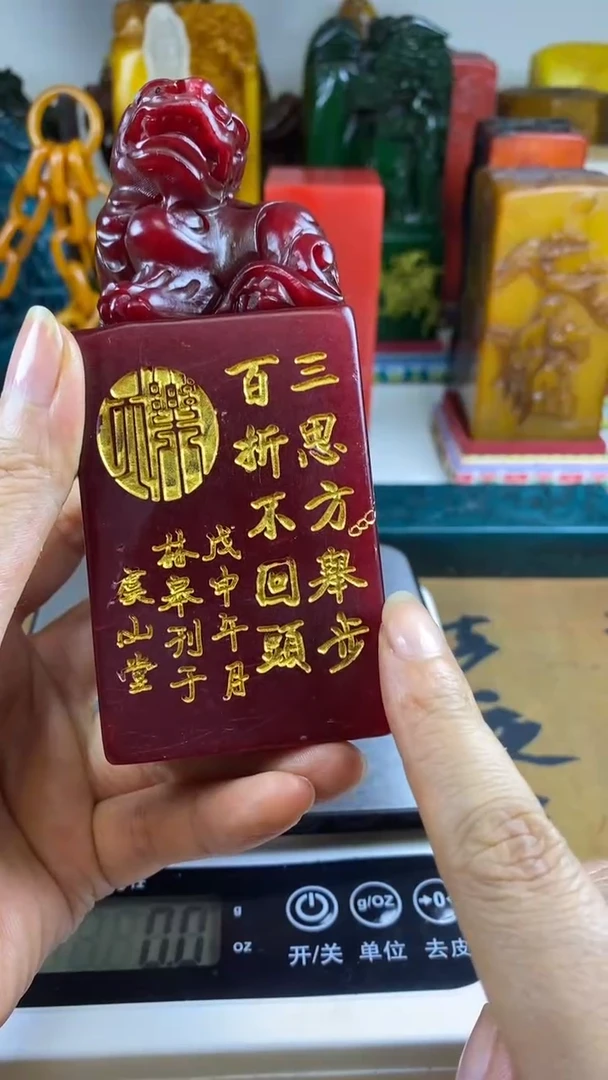 三思方舉步
百折不回頭
戊申年月
林皋刊于
虞山堂
0.0
g
oz
g/oz
→0←
开/关
单位
去皮